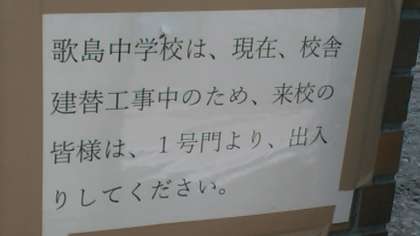 歌島中学校は、現在、校舎
建替工事中のため、来校の
皆様は、１号門より、出入
りしてください。